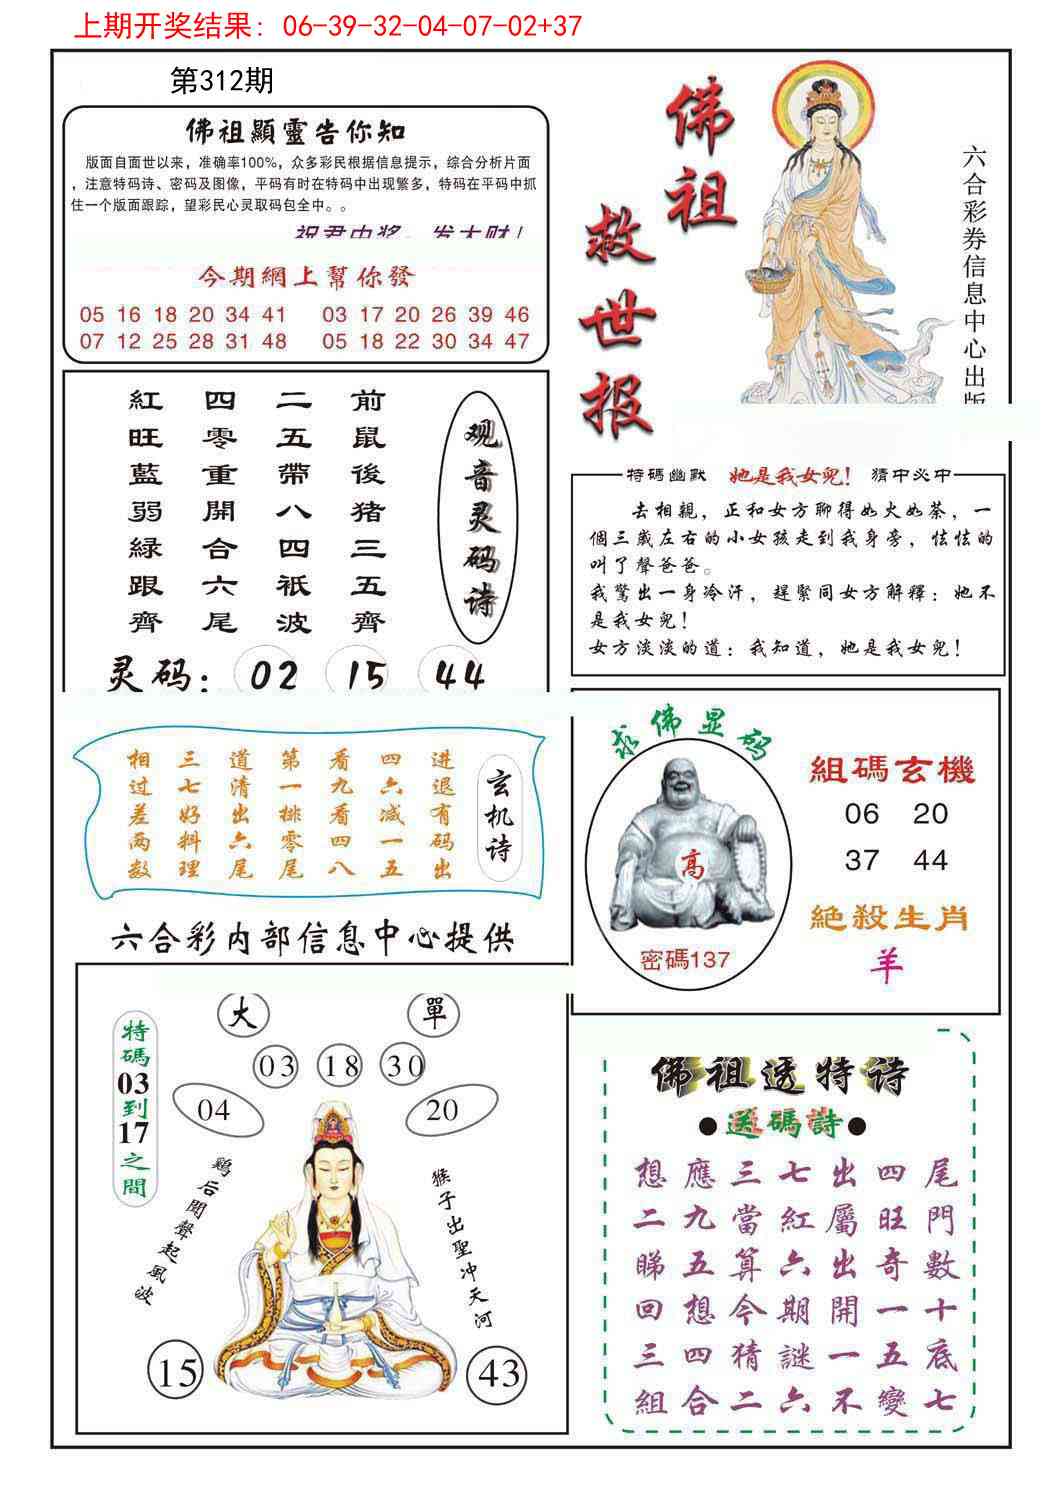 上期开奖结果: 06-39-32-04-07-02+37
第312期
佛祖顯靈告你知
版面自面世以来，准确率100%，众多彩民根据信息提示，综合分析片面
，注意特码诗、密码及图像，平码有时在特码中出现繁多，特码在平码中抓
住一个版面跟踪，望彩民心灵取码包全中。。
祝君中奖，发大财！
今期網上幫你發
05 16 18 20 34 41 03 17 20 26 39 46
07 12 25 28 31 48 05 18 22 30 34 47
佛祖
救世报
六合彩券信息中心出版
观音灵码诗
前鼠後猪三五齊
二五帶八四祇波
四零重開合六尾
紅旺藍弱緑跟齊
灵码: 02 15 44
特碼幽默 她是我女兒! 猜中必中
去相親，正和女方聊得如火如荼，一
個三歲左右的小女孩走到我身旁，怯怯的
叫了聲爸爸。
我驚出一身冷汗，趕緊同女方解釋：她不
是我女兒!
女方淡淡的道：我知道，她是我女兒!
玄机诗
进退有码出
四六减一五
看九看四八
第一排零尾
道清出六尾
三七好料理
相过差两数
求佛显码
高
密碼137
組碼玄機
06 20
37 44
絕殺生肖
羊
六合彩内部信息中心提供
大 單
03 18 30
04 20
特碼03到17之間
鷄后聞聲起風波
猴子出聖冲天河
15 43
佛祖透特诗
●送碼詩●
想應三七出四尾
二九當紅屬旺門
睇五算六出奇數
回想今期開一十
三四猜謎一五底
組合二六不變七